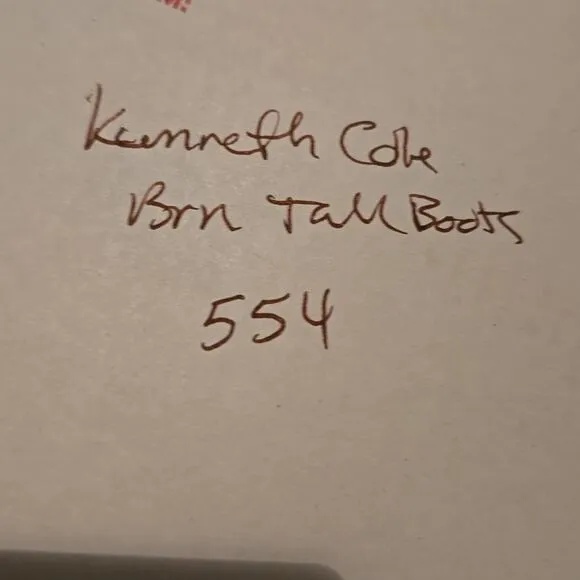 Kenneth Cole
Brn Tall Boots
554